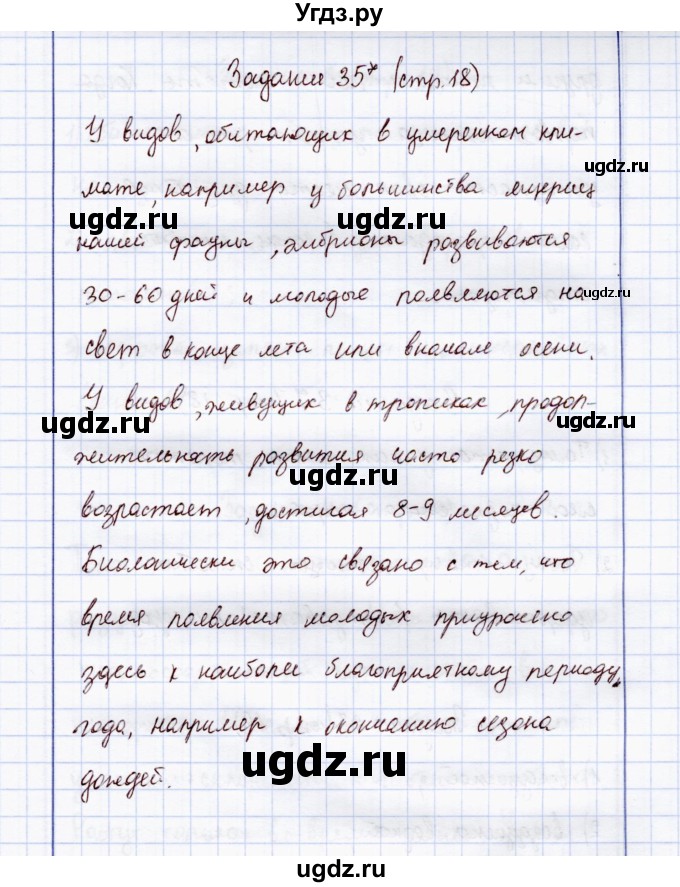 Угдз.ру
Задание 35* (стр.18)
У видов, обитающих в умеренном кли-
ugdz.ru
мате, например у большинства ящериц
ugdz.ru ugdz.ru
нашей фауны, эмбрионы развиваются
30-60 дней и молодые появляются на
ugdz.ru
свет в конце лета или вначале осени.
У видов, живущих в тропиках, продол-
ugdz.ru ugdz.ru
жительность развития часто резко
ugdz.ru
возрастает, достигая 8-9 месяцев.
Биологически это связано с тем, что
ugdz.ru ugdz.ru
время появления молодых приурочено
здесь к наиболее благоприятному периоду
года, например к окончанию сезона
ugdz.ru
дождей.
ugdz.ru
ugdz.ru